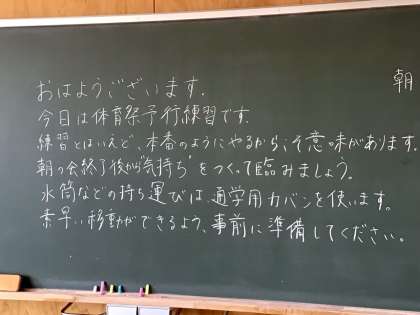 おはようございます.
今日は体育祭予行練習です.
練習とはいえど、本番のようにやるから、そ意味があります.
朝の会終了後から"気持ち"をつくって臨みましょう。
水筒などの持ち運びは、通学用カバンを使います。
素早い移動ができるよう、事前に準備してください。
朝